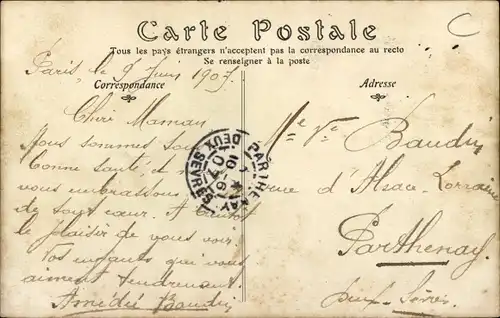 Carte Postale
Tous les pays étrangers n'acceptent pas la correspondance au recto
Se renseigner à la poste
Paris, le 9 Juin 1907.
Correspondance
Chère Maman
Nous sommes
bonne santé, et
vous embrassons
de tout cœur. A
le plaisir de vous voir.
Vos enfants qui vous
aiment tendrement.
Amédée Baudin
Adresse
Me Ve Baudin
rue d'Alsace-Lorraine
Parthenay.
Deux-Sèvres
PARTHENAY
DEUX SEVRES
C